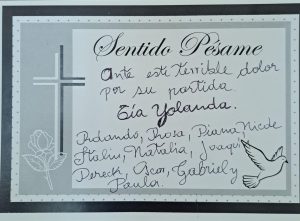 Sentido Pésame
Ante este terrible dolor
por su partida.
Tía Yolanda.
Rosa, Diana, Nicole
Stalin, Natalia, Joaqui
Dereck, Gabriel y
Paula.